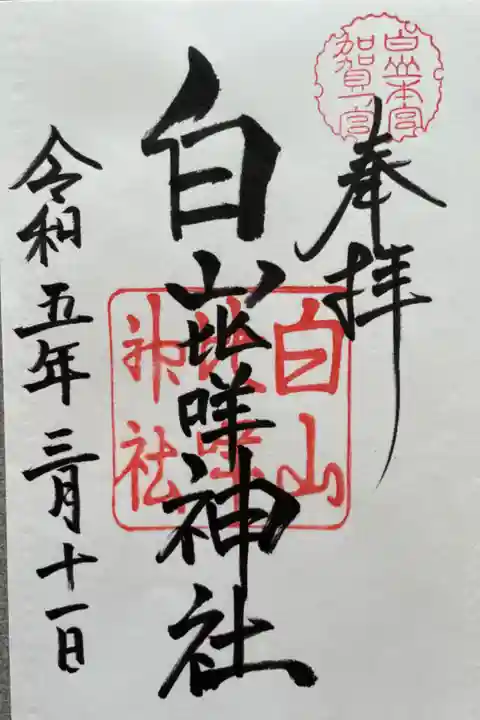 白山本宮
加賀一宮
奉拝
白山比咩神社
白山
比咩
神社
令和五年三月十一日